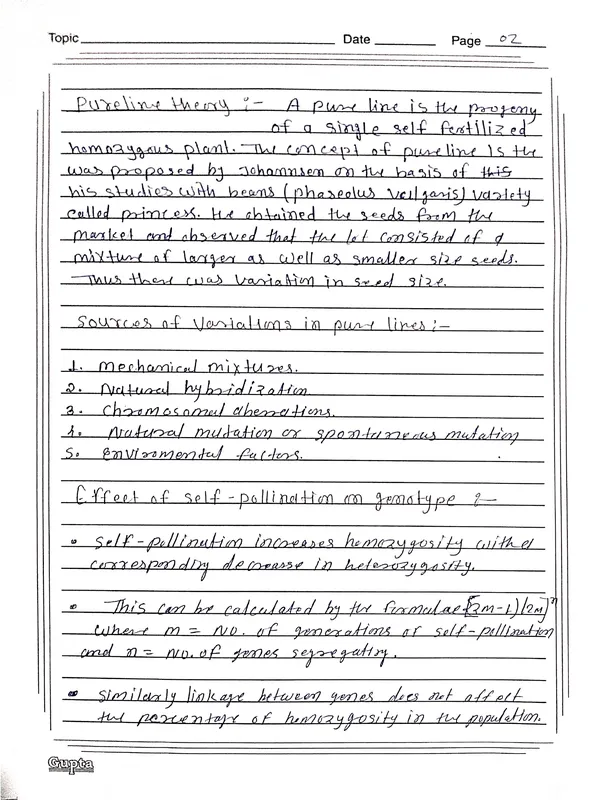 Topic Date Page 02
Pureline theory :- A pure line is the progeny
of a single self fertilized
homozygous plant. The concept of pureline is the
was proposed by Johannsen on the basis of this
his studies with beans (phaseolus vullgaris) variety
called princess. He obtained the seeds from the
market and observed that the lot consisted of a
mixture of larger as well as smaller size seeds.
Thus there was variation in seed size.
Sources of Variations in pure lines :-
1. Mechanical mixtures.
2. Natural hybridization
3. Chromosomal aberrations.
4. Natural mutation or spontaneous mutation
5. Enviromental factors.
Effect of self-pollination on genotype :-
• Self-pollination increases homozygosity with a
corresponding decrease in heterozygosity.
• This can be calculated by the formulae [2m-1)/2m]n
where m = No. of generations of self-pollination
and n = No. of genes segregating.
• Similarly linkage between genes does not affect
the percentage of homozygosity in the population.
Gupta